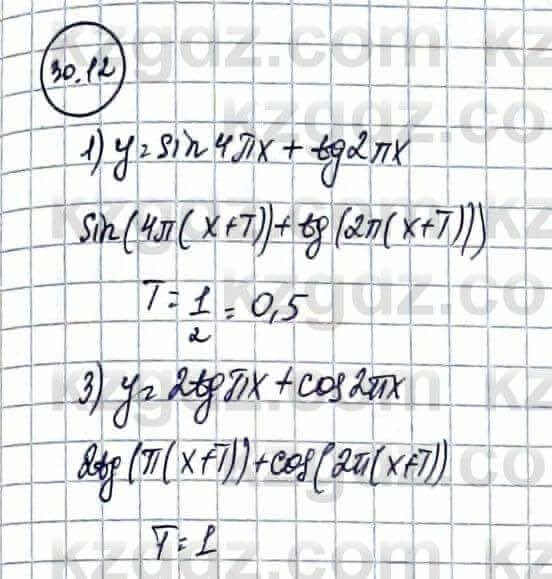 30.12
1) y = sin 4πx + tg 2πx
sin(4π(x+T)) + tg(2π(x+T)))
T = 1/2 = 0,5
3) y = 2tg πx + cos 2πx
2tg(π(x+T)) + cos(2π(x+T))
T = 1
kzgdz.com